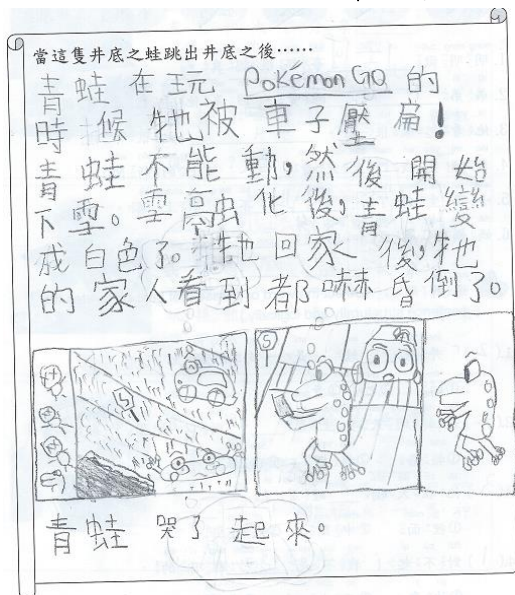 當這隻井底之蛙跳出井底之後……
青蛙在玩 Pokémon GO 的
時候牠被車子壓扁!
青蛙不能動,然後開始
下雪。雪融化後,青蛙變
成白色了。牠回家後,牠
的家人看到都嚇昏倒了。
青蛙哭了起來。